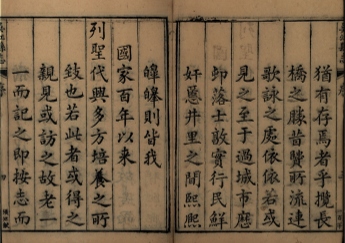 猶有存焉者乎攬長
橋之勝昔賢所流連
歌詠之處依依若或
見之至于過城市廛
卹落士敦實行民鮮
奸慝井里之間熙熙
皥皥則皆我
國家百年以來
列聖代興多方培養之所
致也若此者或得之
親見或訪之故老一
一而記之即按志而